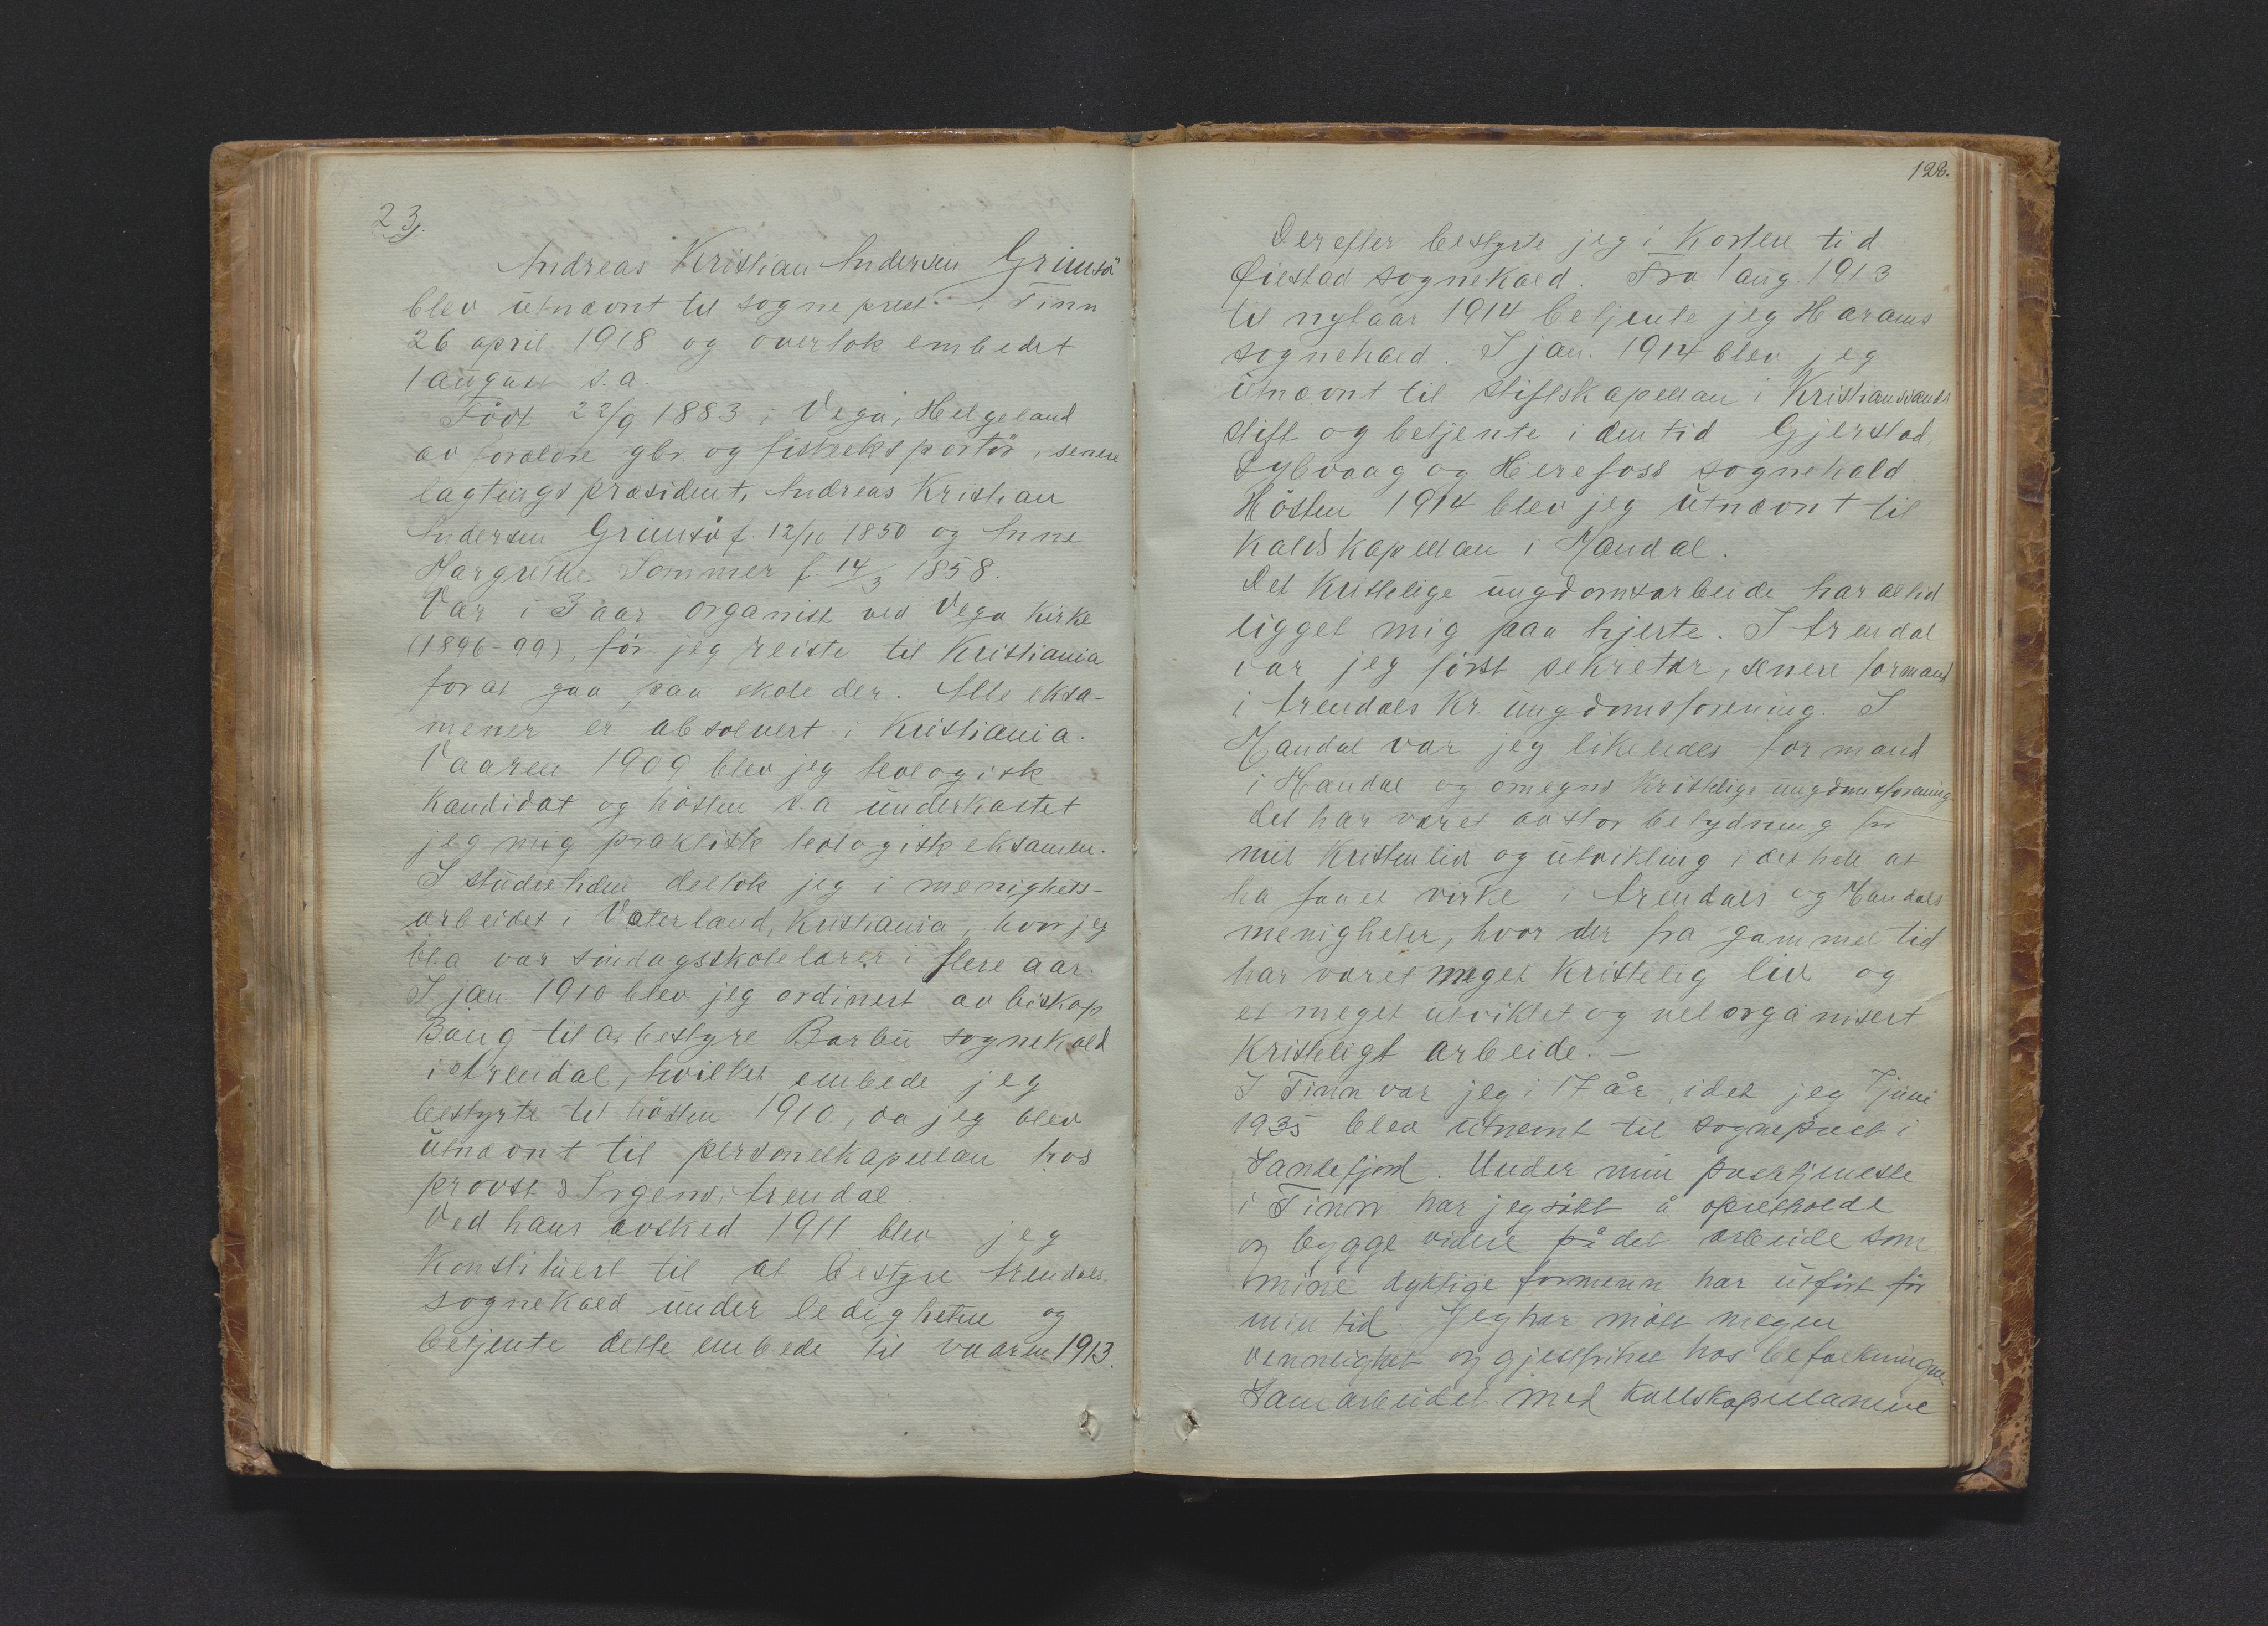 23.
Andreas Kristian Andersen Grimsö
blev utnævnt til sogneprest i Tinn
26 april 1918 og overtok embedet
1 august s.a.
Född 22/9 1883 i Vega, Helgeland
av forældre gbr. og fiskeeksportör, senere
lagtingspræsident, Andreas Kristian
Andersen Grimsö f. 12/10 1850 og Anne
Margrethe Sommer f. 14/3 1858.
Var i 3 aar organist ved Vega kirke
(1896-99), för jeg reiste til Kristiania
forat gaa paa skole der. Alle eksa-
mener er absolvert i Kristiania.
Vaaren 1909 blev jeg teologisk
kandidat og hösten s.a underkastet
jeg mig praktisk teologisk eksamen.
I studietiden deltok jeg i menighets-
arbeidet i Vaterland, Kristiania, hvor jeg
bl.a var söndagsskolelærer i flere aar.
I jan. 1910 blev jeg ordinert av biskop
Bang til at bestyre Barbu sognekald
i Arendal, hvilket embede jeg
bestyrte til hösten 1910, da jeg blev
utnævnt til personelkapellan hos
provst Irgens, Arendal.
Ved hans avsked 1911 blev jeg
konstituert til at bestyre Arendals
sognekald under ledigheten og
betjente dette embede til vaaren 1913.
122.
Derefter bestyrte jeg i kortere tid
Öiestad sognekald. Fra 1 aug. 1913
til nytaar 1914 betjente jeg Harams
sognekald. I jan. 1914 blev jeg
utnævnt til stiftskapellan i Kristianssands
stift og betjente i den tid Gjerstad,
Dybvaag og Herefoss sognekald.
Hösten 1914 blev jeg utnævnt til
kaldskapellan i Mandal.
Det kristelige ungdomsarbeide har altid
ligget mig paa hjerte. I Arendal
var jeg först sekretær, senere formand
i Arendals kr. ungdomsforening. I
Mandal var jeg likeledes formand
i Mandal og omegns kristelige ungdomsforening
Det har været av stor betydning for
mit kristenliv og utvikling i det hele at
ha faaet virke i Arendals og Mandals
menigheter, hvor der fra gammel tid
har været meget kristelig liv og
et meget utviklet og vel organisert
kristeligt arbeide. —
I Tinn var jeg i 17 år, idet jeg 7 juni
1935 blev utnemt til sogneprest i
Sandefjord. Under min prestetjeneste
i Tinn har jeg sökt å opretholde
og bygge videre på det arbeide som
mine dyktige formenn har utfört för
min tid. Jeg har mött megen
vennlighet og gjestfrihet hos befolkningen.
Samarbeidet med kallskapellanene